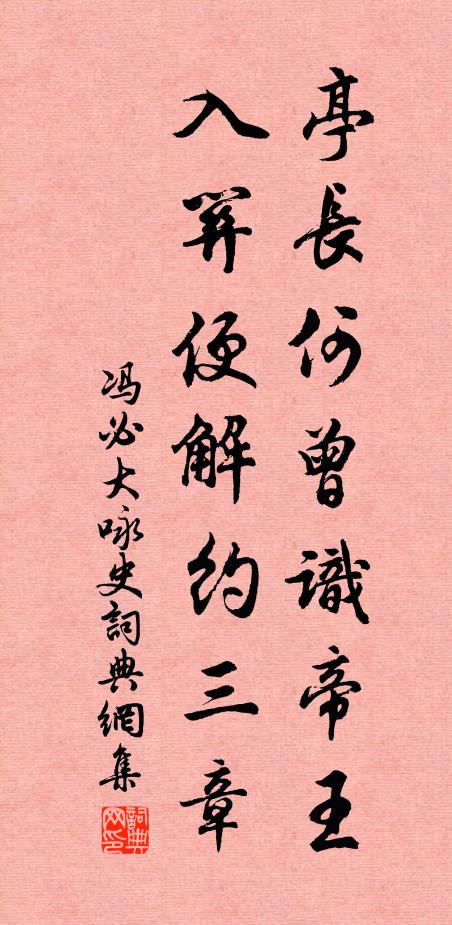 亭長何曾識帝王
入關便解約三章
冯必大咏史詞典網集
詞典网印